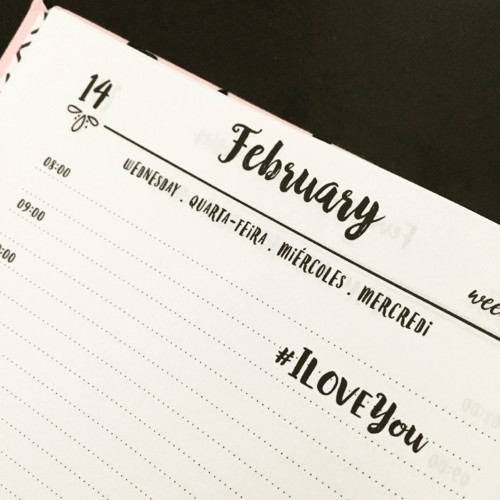 14
February
WEDNESDAY . QUARTA-FEIRA . MIÉRCOLES . MERCREDI
08:00
09:00
#ILOVEYou